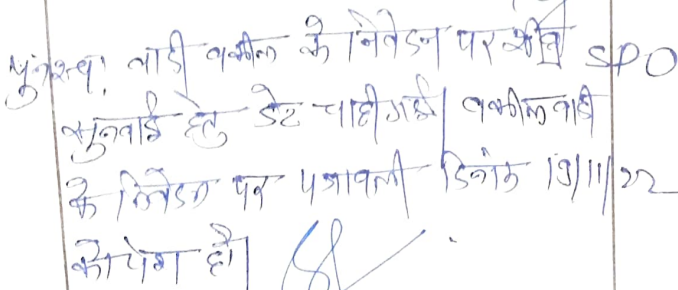 पुनश्च: वादी वकील के निवेदन पर शीघ्र SPO
सुनवाई हेतु डेट चाही गई। वकील वादी
के निवेदन पर पत्रावली दिनांक 19/11/22
को पेश हो।